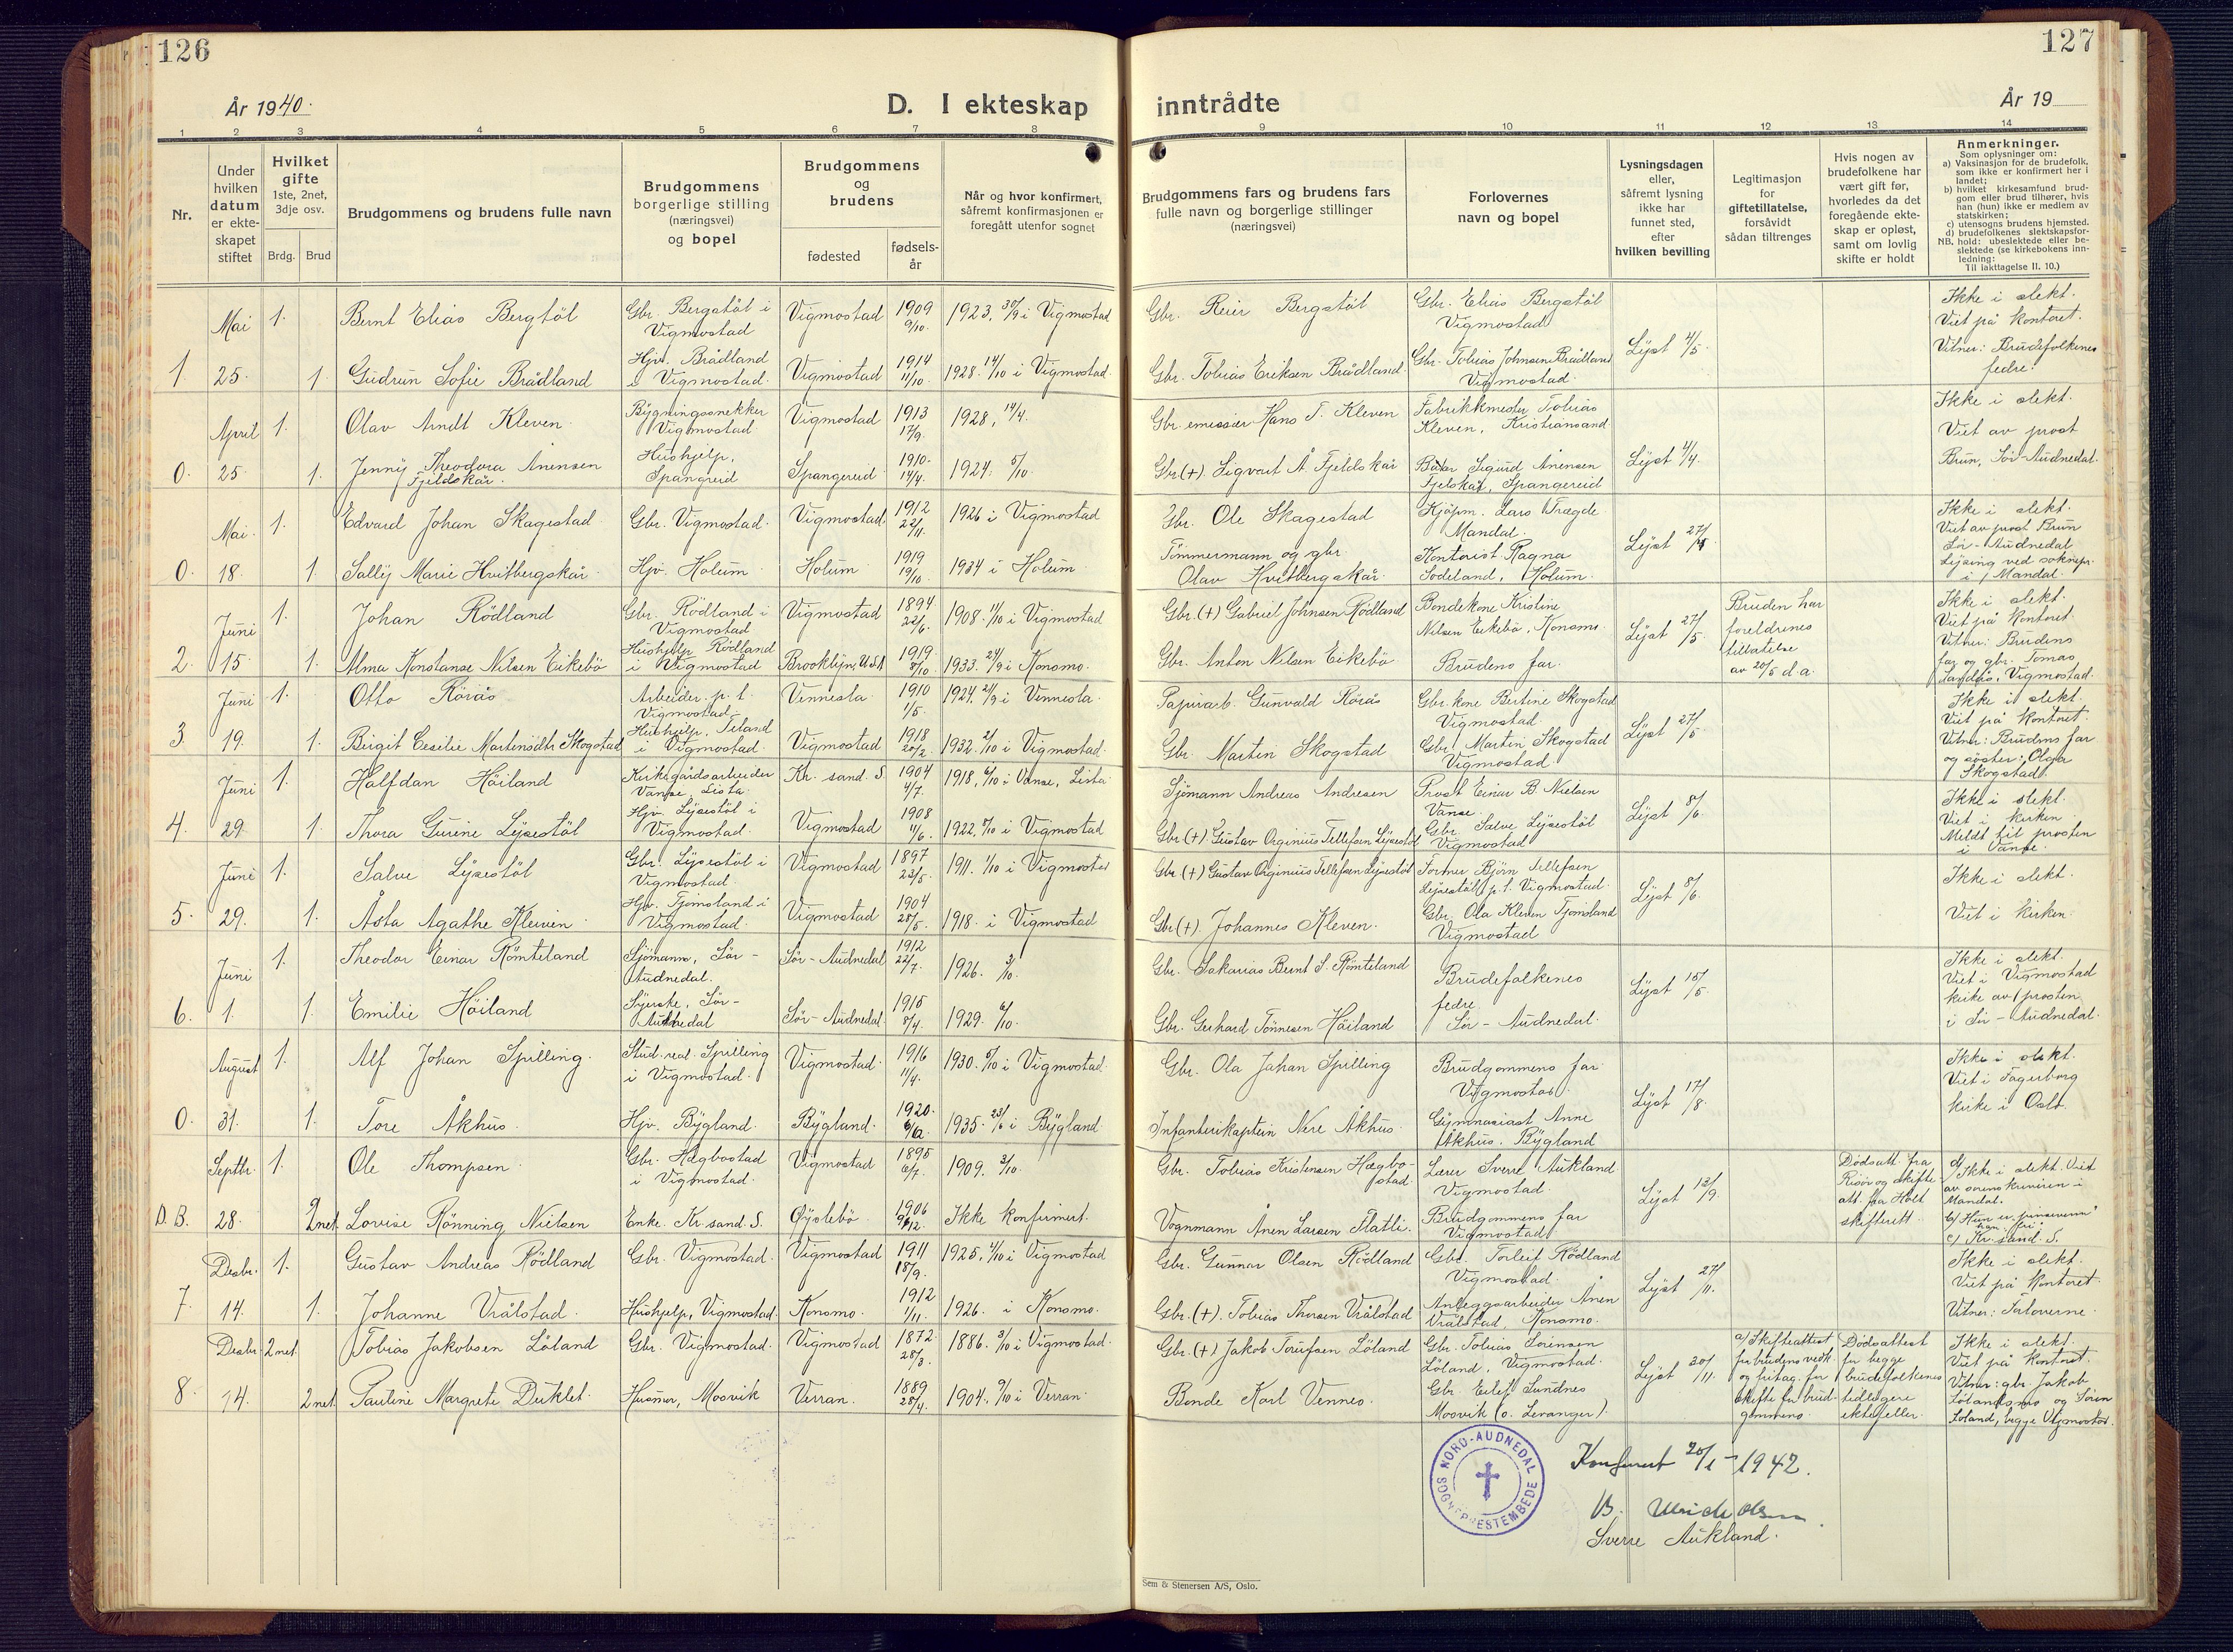 126
127
År 1940.
D. I ekteskap
inntrådte
År 19
1 2 3 4 5 6 7 8
9 10 11 12 13 14
Nr.
Under hvilken datum er ekteskapet stiftet
Hvilket gifte
1ste, 2net, 3dje osv.
Brdg. Brud
Brudgommens og brudens fulle navn
Brudgommens borgerlige stilling (næringsvei) og bopel
Brudgommens og brudens
fødested
fødselsår
Når og hvor konfirmert, såfremt konfirmasjonen er foregått utenfor sognet
Brudgommens fars og brudens fars fulle navn og borgerlige stillinger (næringsvei)
Forlovernes navn og bopel
Lysningsdagen eller, såfremt lysning ikke har funnet sted, efter hvilken bevilling
Legitimasjon for giftetillatelse, forsåvidt sådan tiltrenges
Hvis nogen av brudefolkene har vært gift før, hvorledes da det foregående ekteskap er opløst, samt om lovlig skifte er holdt
Anmerkninger.
Som oplysninger om:
a) Vaksinasjon for de brudefolk, som ikke er konfirmert her i landet;
b) hvilket kirkesamfund brudgom eller brud tilhører, hvis han (hun) ikke er medlem av statskirken;
c) utensogns brudens hjemsted.
d) brudefolkenes slektskapsforhold: ubeslektede eller beslektede (se kirkebokens innledning:
NB.
Til iakttagelse II. 10.)
Mai 1. Bernt Elias Bergstöl Gbr. Bergstöl i Vigmostad Vigmostad 1909 9/10. 1923. 30/9 i Vigmostad Gbr. Reier Bergstöl Gbr. Elias Bergstöl Vigmostad
1 25. 1. Gudrun Sofie Brådland Hjv. Brådland i Vigmostad. Vigmostad 1914 11/10. 1928. 14/10 i Vigmostad. Gbr. Tobias Eriksen Brådland Gbr. Tobias Johnsen Brådland Vigmostad. Lyst 4/5.
Ikke i slekt. Viet på kontoret. Vitner: Brudefolkenes fedre.
April 1. Olav Arndt Kleven. Bygningssnekker Vigmostad. Vigmostad 1913 17/9. 1928, 14/4. Gbr. emissær Hans T. Kleven Fabrikkmester Tobias Kleven, Kristiansand
0. 25 1. Jenny Theodora Anensen Fjeldskår. Hushjelp, Spangreid Spangereid 1910. 14/4. 1924. 5/10. Gbr (+). Sigvart A Fjeldskår Baker Sigurd Anensen Fjelskår, Spangereid Lyst 4/4.
Ikke i slekt. Viet av prost Brun, Sör-Audnedal.
Mai. 1. Edvard Johan Skagestad Gbr. Vigmostad. Vigmostad 1912 22/11. 1926 i Vigmostad Gbr. Ole Skagestad Kjöpm. Lars Trægde Mandal.
0. 18. 1. Sally Marie Hvitbergskår. Hjv. Holum. Holum. 1919 19/10 1934 i Holum. Tömmermann og gbr. Olav Hvitbergskår. Kontorist Ragna Sodeland, Holum. Lyst 27/4.
Ikke i slekt. Viet av prost Brun Sör-Audnedal Lysing ved soknepr. i Mandal.
Juni 1. Johan Rödland Gbr. Rödland i Vigmostad Vigmostad 1894 22/6. 1908. 11/10 i Vigmostad Gbr. (+) Gabriel Johnsen Rödland Bondekone Kristine Nilsen Eikebö, Konsmo.
2. 15. 1. Alma Konstanse Nilsen Eikebö Hushjelp Rödland i Vigmostad Brooklyn, USA 1919. 8/10 1933. 24/9 i Konsmo. Gbr. Anton Nilsen Eikebö Brudens far. Lyst 27/5. Bruden har foreldrenes tillatelse av 20/5 d.a.
Ikke i slekt. Viet på kontoret. Vitner: Brudens far og gbr. Tomas Vigmostad.
Juni 1. Otto Rörås Arbeider p. t. Vigmostad. Vennesla. 1910 1/5. 1924. 21/9 i Vennesla. Papirarb. Gunvald Rörås Gbr. kone Bertine Skogstad Vigmostad.
3. 19. 1. Birgit Cecilie Martensdtr Skogstad Hushjelp, i Vigmostad. Vigmostad. 1918 20/2. 1932. 2/10 i Vigmostad. Gbr. Martin Skogstad Gbr. Martin Skogstad Vigmostad Lyst 27/5.
Ikke i slekt. Viet på kontoret. Vitner: Brudens far og söster: Olga Skogstad.
Juni 1. Halfdan Höiland Kirkegårdsarbeider Vanse, Lista. Kr. sand. S 1904 4/7. 1918. 6/10 i Vanse, Lista. Sjömann Andreas Andresen Prost Einar B. Nielsen Vanse.
4. 29. 1. Thora Gurine Lysestöl Hjv. Lysestöl i Vigmostad. Vigmostad 1908 11/6. 1922. 8/10 i Vigmostad Gbr. (+) Gustav Orginius Tellefsen Lysestöl Gbr. Salve Lysestöl Vigmostad Lyst 8/6.
Ikke i slekt. Viet i kirken. Meldt til prosten i Vanse.
Juni 1. Salve Lysestöl Gbr. Lysestöl i Vigmostad. Vigmostad 1897 23/5. 1911. 1/10 i Vigmostad Gbr. (+) Gustav Orginius Tellefsen Lysestöl Former Björn Tellefsen Lysestöl p. t. Vigmostad.
5. 29. 1. Åsta Agathe Kleiven. Hjv. Tjomsland i Vigmostad. Vigmostad 1904 28/5. 1918. i Vigmostad Gbr (+). Johannes Kleven. Gbr. Ola Kleven Tjomsland Vigmostad Lyst 8/6.
Ikke i slekt. Viet i kirken.
Juni 1. Theodor Einar Römteland Sjömann, Sör-Audnedal. Sör-Audnedal 1912 22/7. 1926. 3/10. Gbr. Sakarias Bernt S. Römteland Brudefolkenes fedre.
6. 1. 1. Emilie Höiland Syerske, Sör-Audnedal Sör-Audnedal. 1915 8/4. 1929. 6/10. Gbr. Gerhard Tönnesen Höiland Sör-Audnedal. Lyst 15/5.
Ikke i slekt. Viet i Vigmostad kirke av prosten i Sör-Audnedal.
August 1. Alf Johan Spilling. Stud. real. Spilling i Vigmostad. Vigmostad. 1916 11/4. 1930. 5/10 i Vigmostad. Gbr. Ola Johan Spilling Brudgommens far Vigmostad.
0. 31. 1. Tore Åkhus. Hjv. Bygland. Bygland. 1920. 1935. 23/6 i Bygland Infanterikaptein Nere Åkhus. Gymnasiast Anne Åkhus. Bygland Lyst 17/8.
Ikke i slekt. Viet i Fagerborg kirke i Oslo.
Septbr. 1. Ole Thompsen. Gbr. Hægbostad i Vigmostad. Vigmostad 1895 6/7. 1909. 3/10. Gbr. Tobias Kristensen Hægbostad. Lærer Sverre Aukland Vigmostad.
D.B. 28. 2net. Lovise Rönning Nielsen Enke. Kr. sand. S. Öyslebö. 1906 Ikke konfirmert. Vognmann Anen Larsen Flatli. Brudgommens far Vigmostad Lyst 13/9. Dödsatt. fra Risör og skifteatt. fra Holt skifterett.
Ikke i slekt. Viet av sorenskriveren i Mandal. c) Kr. sand. S.
Desbr. 1. Gustav Andreas Rödland Gbr. Vigmostad. Vigmostad 1911 18/9. 1925. 4/10 i Vigmostad Gbr. Gunnar Olsen Rödland Gbr. Torleif Rödland Vigmostad.
7. 14. 1. Johanne Vrålstad. Hushjelp, Vigmostad. Konsmo. 1912 1/11. 1926. i Konsmo. Gbr (+). Tobias Thorsen Vrålstad Anleggsarbeider Ånen Vrålstad, Konsmo. Lyst 27/11.
Ikke i slekt. Viet på kontoret. Vitner: Forloverne.
Desbr. 2net. Tobias Jakobsen Löland Gbr. Vigmostad. Vigmostad 1872. 28/3. 1886. 3/10 i Vigmostad. Gbr. (+) Jakob Toufsen Löland Gbr. Tobias Sörensen Löland, Vigmostad.
8. 14. 2net. Pauline Margrete Duklet. Husmor, Mosvik Verran. 1889 28/4. 1904. 9/10 i Verran. Bonde Karl Vennes. Gbr. Eilef Sundnes Mosvik (o. Levanger). Lyst 30/11. a) Skifteattest for brudens vedk. og fritag. for skifte for brudgommens. Dödsattest for begge brudefolkenes tidligere ektefeller
Ikke i slekt. Viet på kontoret. Vitner: gbr. Jakob Lölandsmo og Sören Löland, begge Vigmostad.
NORD-AUDNEDAL SOGNEPRESTEMBEDE
Konferert 20/1-1942.
Sverre Aukland.
Sem & Stenersen A/S, Oslo.